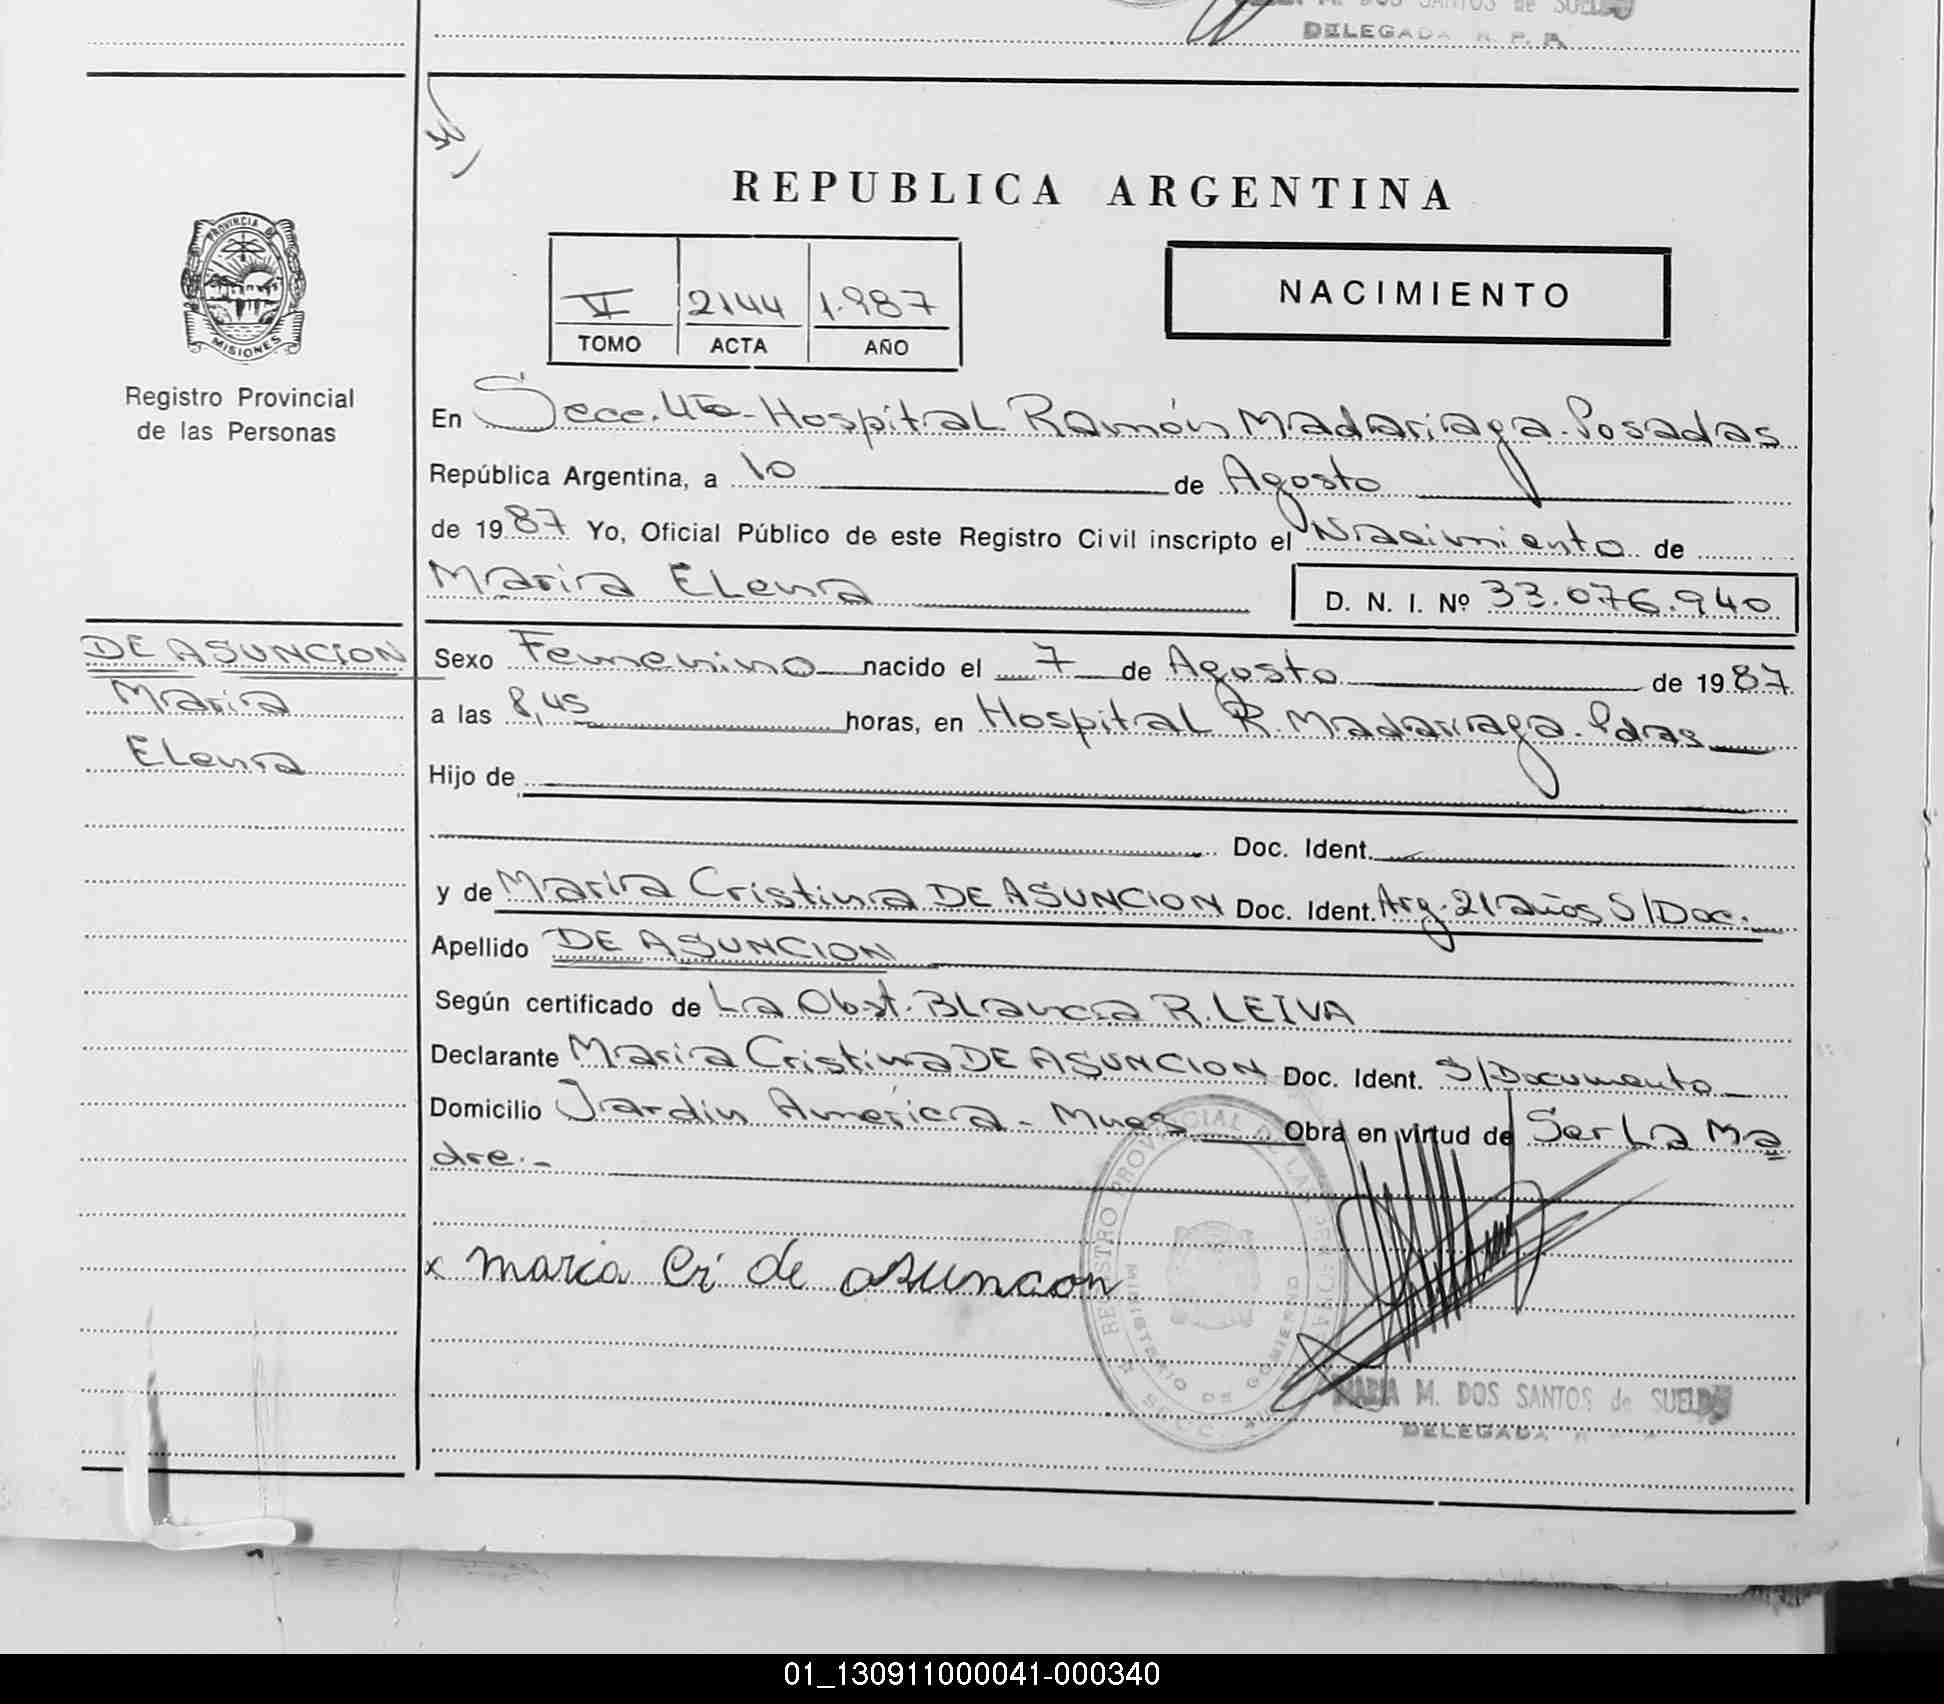 DOS SANTOS de SUELDO
DELEGADA R. P. P.
REPUBLICA ARGENTINA
PROVINCIA DE
MISIONES
Registro Provincial
de las Personas
VI 2144 1.987
TOMO ACTA AÑO
NACIMIENTO
En Secc. 4ta - Hospital Ramón Madariaga. Posadas
República Argentina, a 10 de Agosto
de 1987 Yo, Oficial Público de este Registro Civil inscripto el Nacimiento de
Maria Elena D. N. I. Nº 33.076.940
DE ASUNCION
Maria
Elena
Sexo Femenino nacido el 7 de Agosto de 1987
a las 8,45 horas, en Hospital R. Madariaga. Pdas
Hijo de
Doc. Ident.
y de Maria Cristina DE ASUNCION Doc. Ident. Arg. 21 años S/Doc.
Apellido DE ASUNCION
Según certificado de La Obst. Blanca R. LEIVA
Declarante Maria Cristina DE ASUNCION Doc. Ident. S/Documento
Domicilio Jardin América - Mnes Obra en virtud de Ser La Ma
dre.-
x maria Cri de asuncion
REGISTRO PROVINCIAL DE LAS PERSONAS
MINISTERIO DE GOBIERNO
MARIA M. DOS SANTOS de SUELDO
DELEGADA
01_130911000041-000340